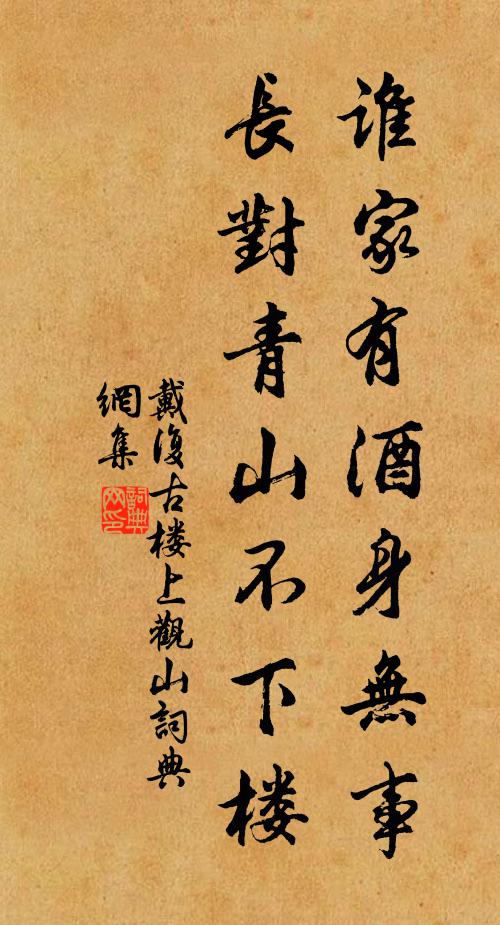 谁家有酒身無事
長對青山不下楼
戴復古楼上觀山詞典
網集
詞典网印